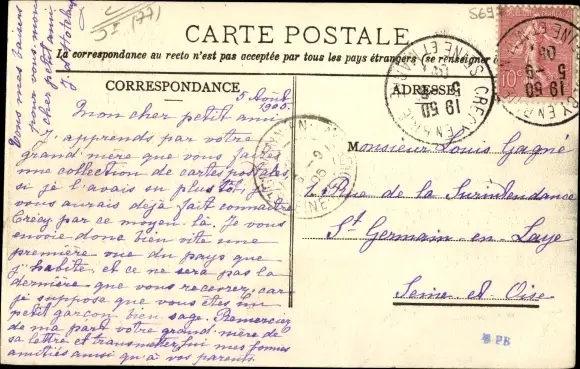 S I (77)
S69
CARTE POSTALE
La correspondance au recto n'est pas acceptée par tous les pays étrangers (se renseigner
CORRESPONDANCE
ADRESSE
5 Août
Mon cher petit ami
J'apprends par votre
grand mère que vous faites
une collection de cartes postales,
si je l'avais su plus tôt, je
vous aurais déjà fait connaitre
Crécy par ce moyen là. Je vous
envoie donc bien vite une
première vue du pays que
j'habite, et ce ne sera pas la
dernière que vous recevrez, car
je suppose que vous êtes un
petit garçon bien sage. Remerciez
de ma part votre grand mère de
sa lettre et transmettez lui mes bonnes
amitiés ainsi qu'à vos parents.
Mes baisers
pour vous mon
cher petit ami
Monsieur Louis Gagné
1, Rue de la Surintendance
St Germain en Laye
Seine et Oise
CRECY-EN-BRIE
SEINE ET MARNE
19 50
5 -9
05
10
PB